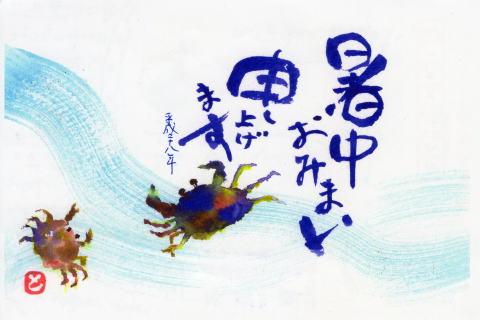 暑中
おみまい
申し上げ
ます
平成二十八年
と